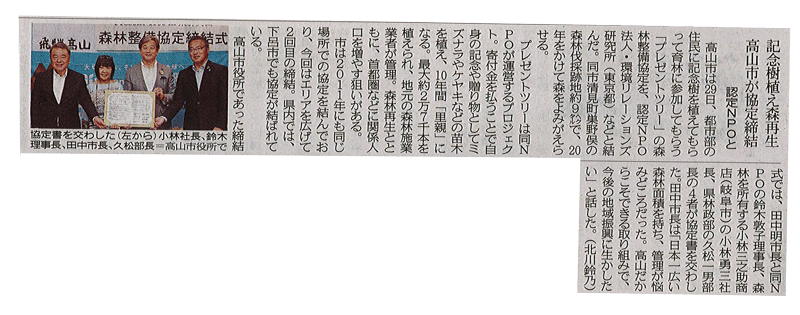 記念樹植え森再生
高山市が協定締結
認定NPOと
高山市は29日、都市部の
住民に記念樹を植えてもら
って育林に参加してもらう
「プレゼントツリー」の森
林整備協定を、認定NPO
法人・環境リレーションズ
研究所（東京都）などと結
んだ。同市清見町巣野俣の
森林伐採跡地約9㌶で、20
年をかけて森をよみがえら
せる。
プレゼントツリーは同N
POが運営するプロジェク
ト。寄付金を払うことで自
身の記念や贈り物としてミ
ズナラやケヤキなどの苗木
を植え、10年間「里親」に
なる。最大約2万7千本を
植えられ、地元の森林施業
業者が管理。森林再生とと
もに、首都圏などに関係人
口を増やす狙いがある。
市は2011年にも同じ
場所での協定を結んでお
り、今回はエリアを広げて
2回目の締結。県内では、
下呂市でも協定が結ばれて
いる。
高山市役所であった締結
式では、田中明市長と同N
POの鈴木敦子理事長、森
林を所有する小林三之助商
店（岐阜市）の小林勇三社
長、県林政部の久松一男部
長の4者が協定書を交わし
た。田中市長は「日本一広い
森林面積を持ち、管理が悩
みどころだった。高山だか
らこそできる取り組みで、
今後の地域振興に生かした
い」と話した。（北川鈴乃）
飛騨高山
森林整備協定締結式
協定書を交わした（左から）小林社長、鈴木
理事長、田中市長、久松部長＝高山市役所で